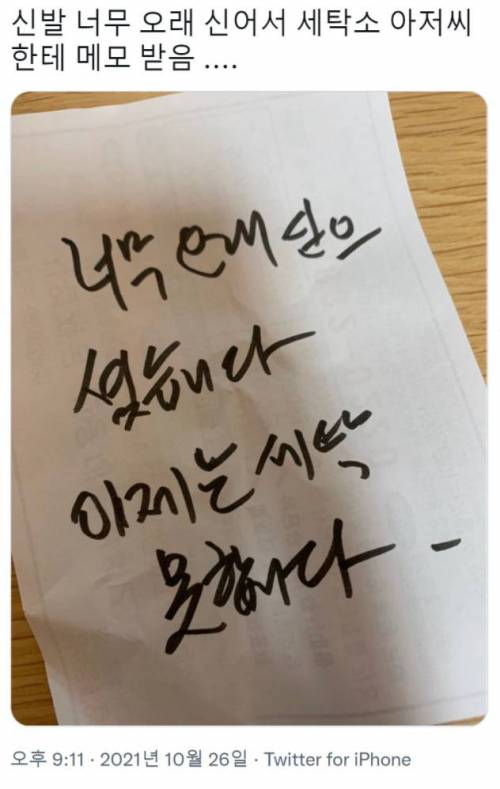 신발 너무 오래 신어서 세탁소 아저씨
한테 메모 받음 ....
너무 오래 신으
셨습니다
이제는 세탁
못합니다 -
오후 9:11 · 2021년 10월 26일 · Twitter for iPhone